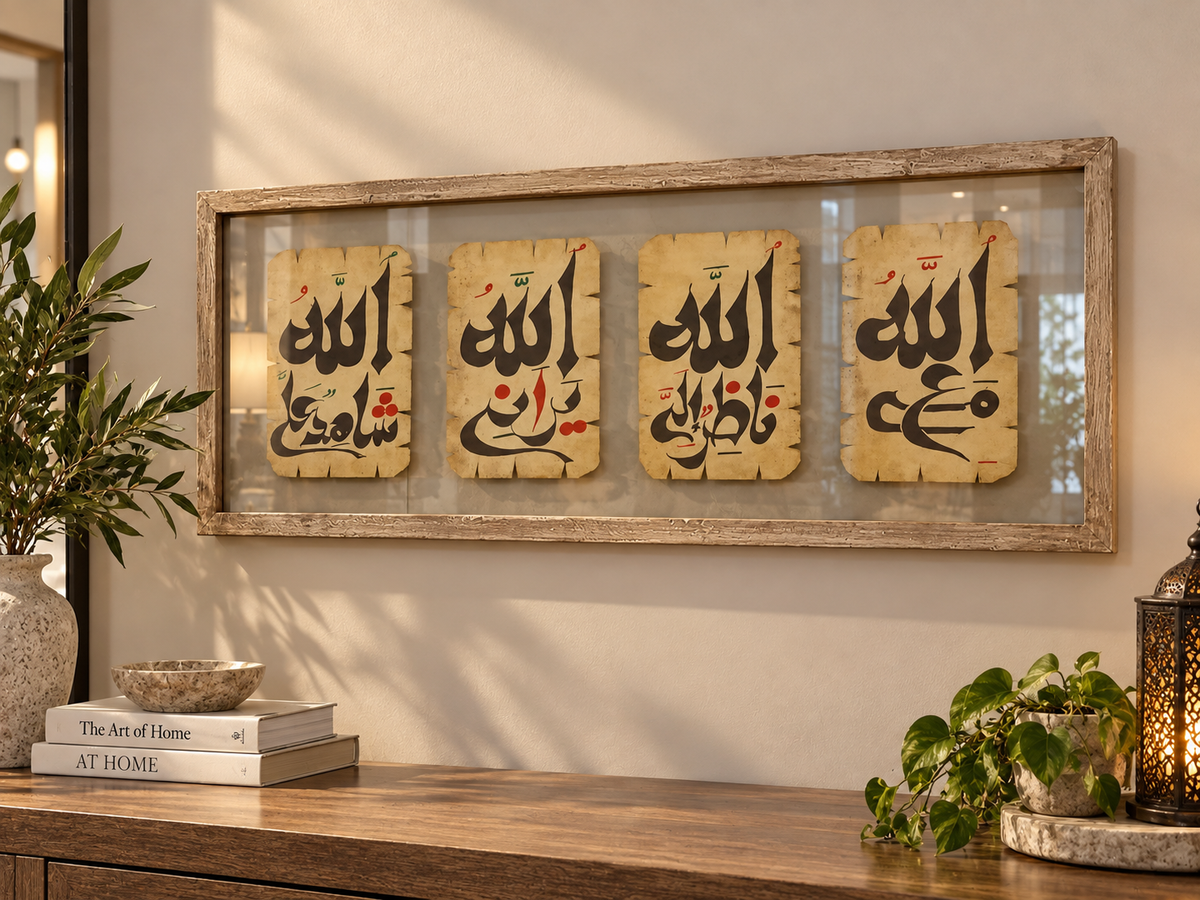 اللَّهُ
مَعِي
اللَّهُ
نَاظِرٌ إِلَيَّ
اللَّهُ
يَرَانِي
اللَّهُ
شَاهِدٌ عَلَيَّ
The Art of Home
AT HOME